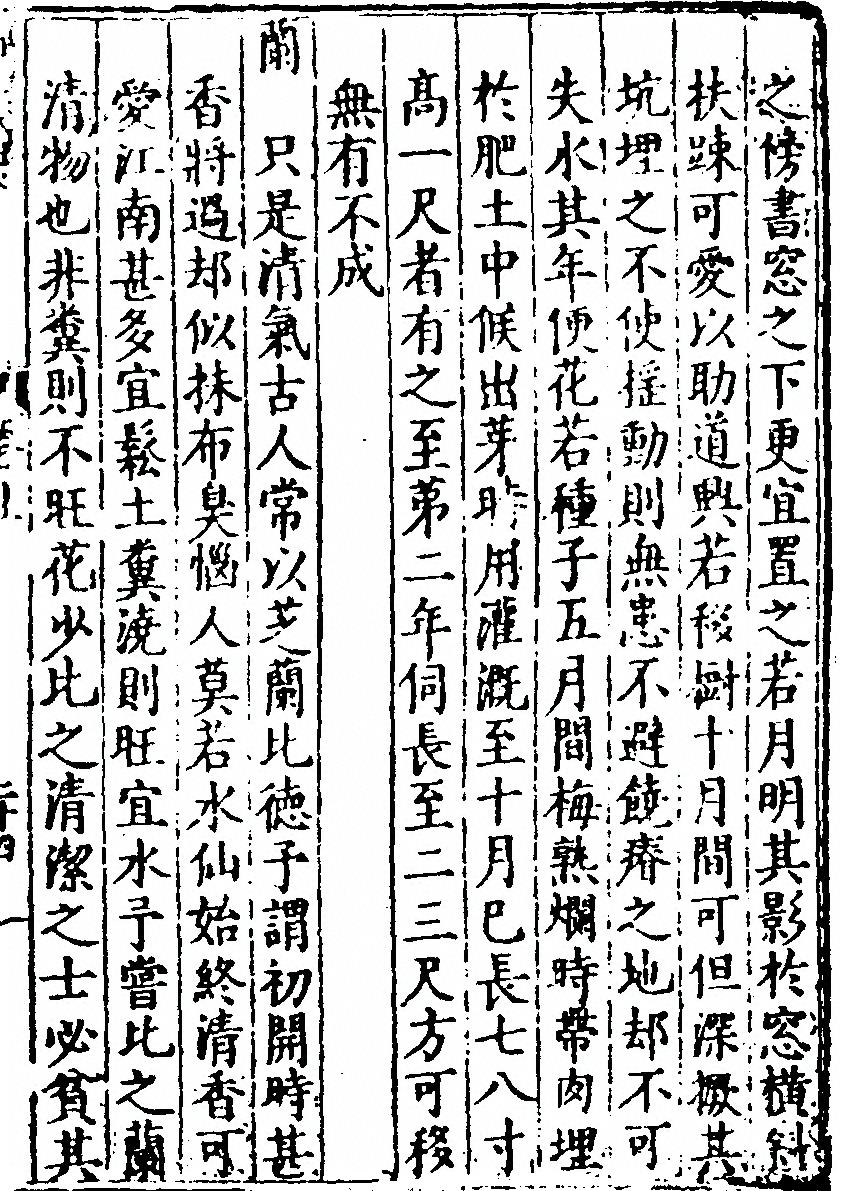 之傍書窓之下更宜置之若月明其影於窓橫斜
扶踈可愛以助道興若移樹十月間可但深撅其
坑埋之不使揺動則無患不避饒瘠之地却不可
失水其年便花若種子五月間梅熟爛時帶肉埋
於肥土中候出芽時用灌漑至十月巳長七八寸
髙一尺者有之至第二年伺長至二三尺方可移
無有不成
蘭　只是清氣古人常以芝蘭比德予謂初開時甚
香將過却似抹布臭惱人莫若水仙始終清香可
愛江南甚多宜鬆土糞澆則旺宜水予嘗比之蘭
清物也非糞則不旺花少比之清潔之士必貧其
二十四